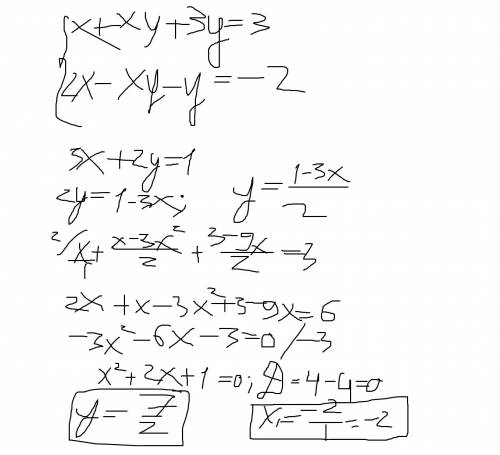 x+xy+3y=3
2x-xy-y=-2
3x+2y=1
2y=1-3x; y=\frac{1-3x}{2}
^{2/}\frac{x}{1}+\frac{x-3x^2}{2}+\frac{3-9x}{2}=3
2x+x-3x^2+3-9x=6
-3x^2-6x-3=0/-3
x^2+2x+1=0; D=4-4=0
y=\frac{7}{2} x_1=\frac{-2}{1}=-2